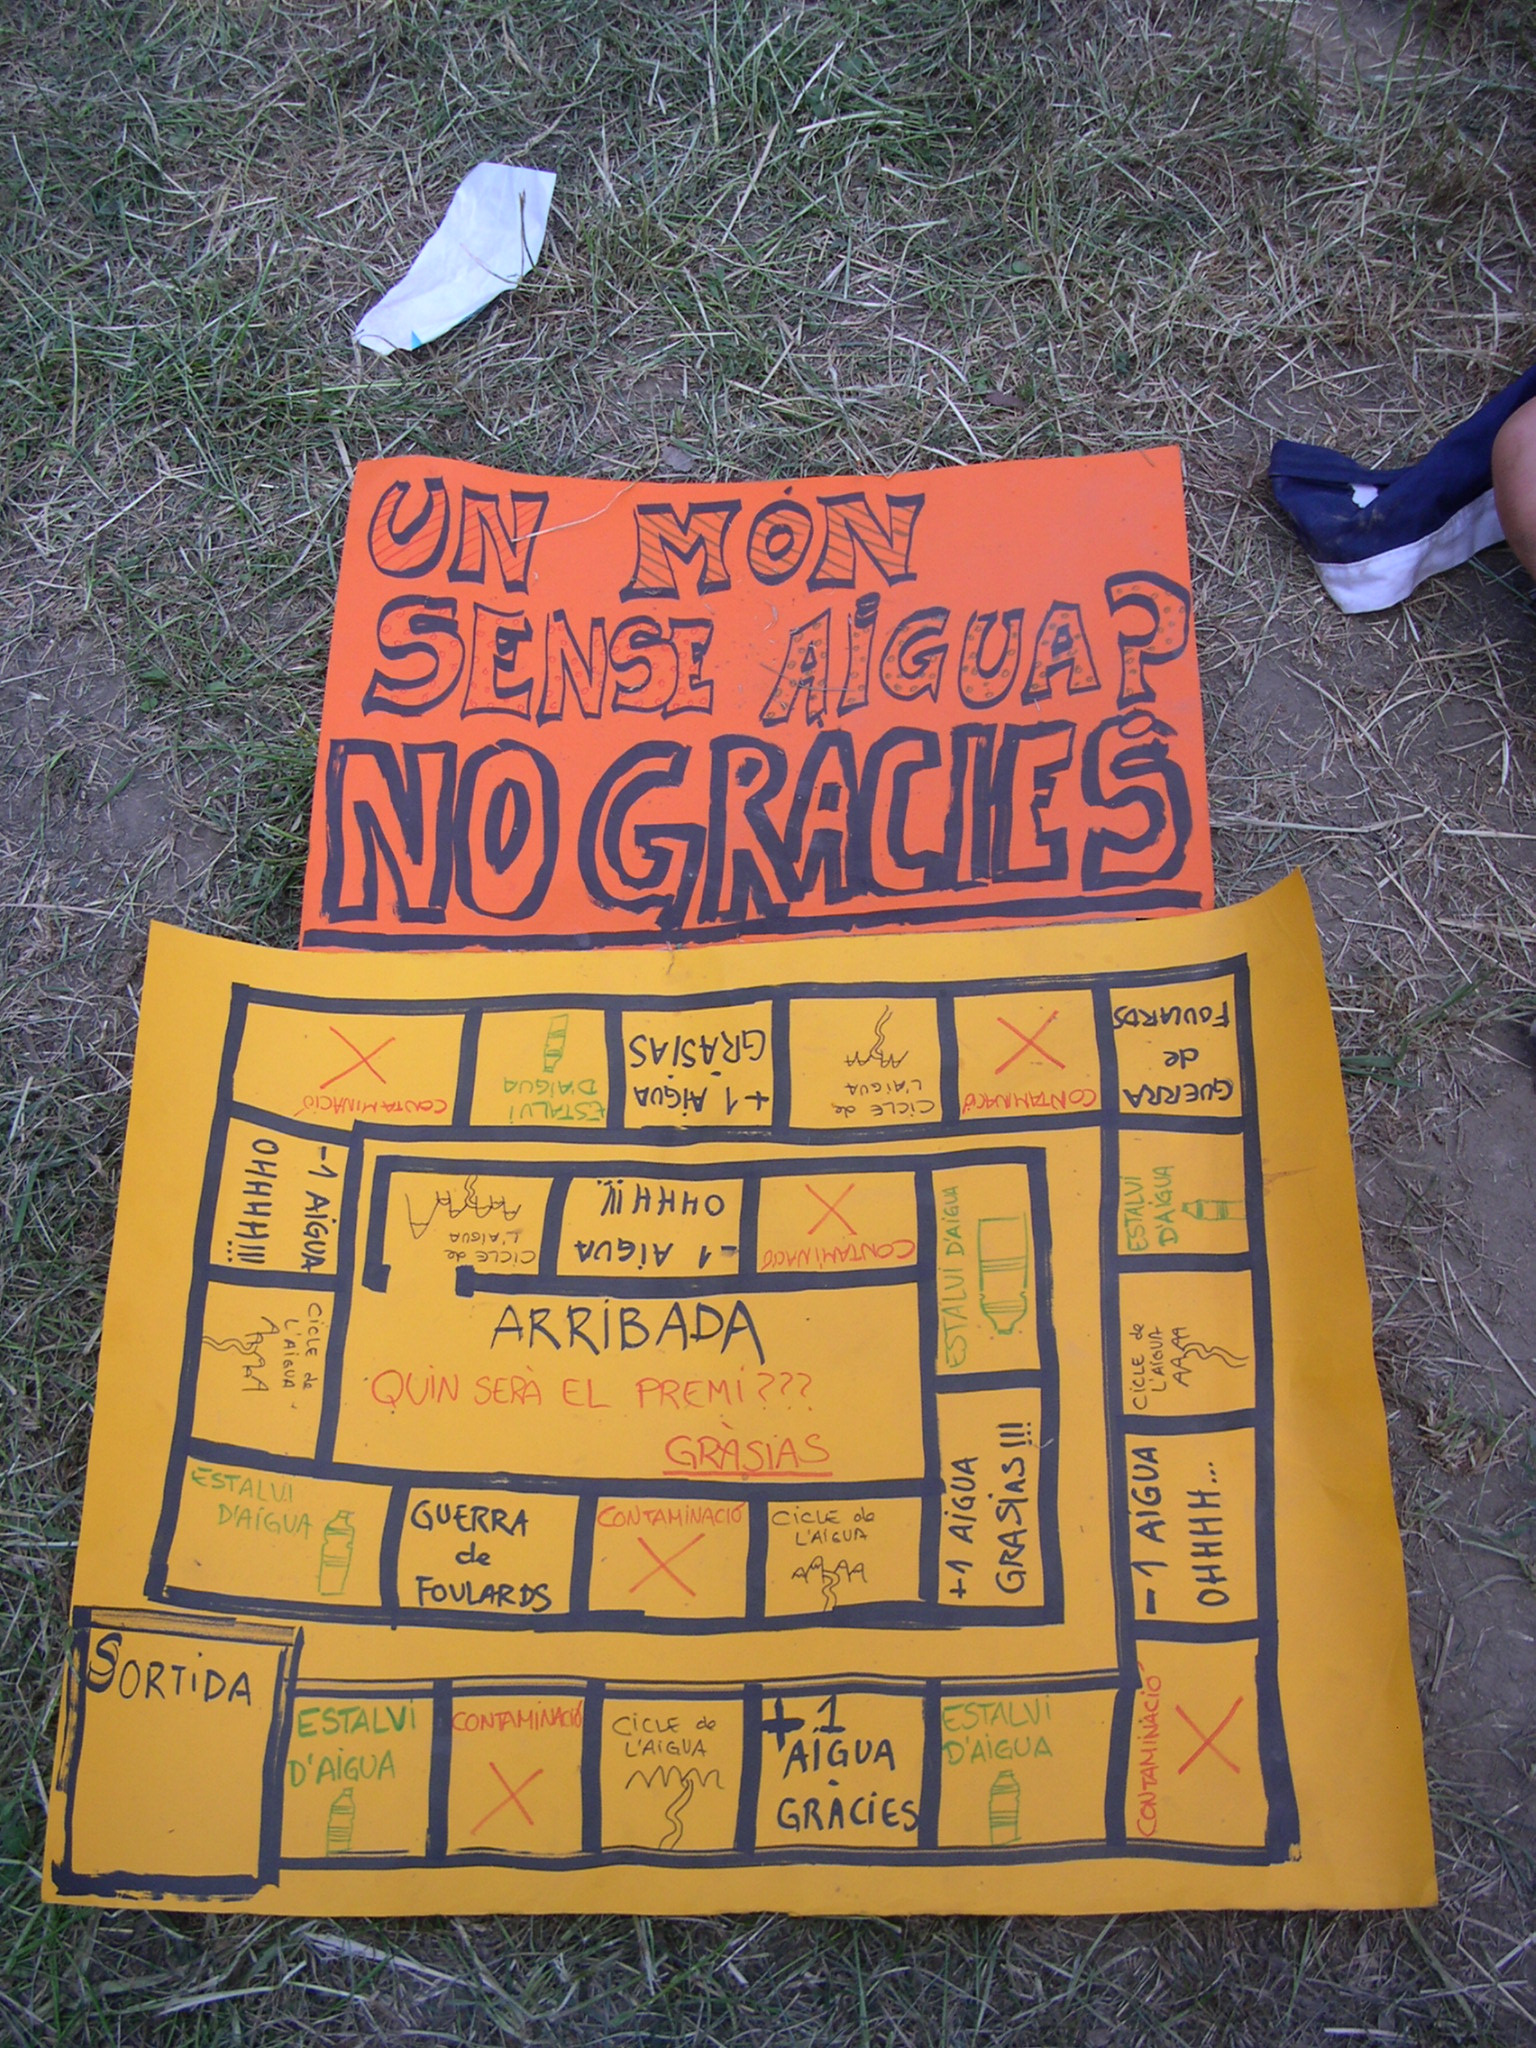 UN MÓN
SENSE AIGUA?
NO GRÀCIES
SORTIDA
ESTALVI
D'AIGUA
CONTAMINACIÓ
CICLE de
L'AIGUA
+1
AIGUA
GRÀCIES
ESTALVI
D'AIGUA
CONTAMINACIÓ
-1 AIGUA
OHHHH...
CICLE de
L'AIGUA
ESTALVI
D'AIGUA
GUERRA
de
FOULARDS
CONTAMINACIÓ
CICLE de
L'AIGUA
+1 AIGUA
GRÀSIAS
ESTALVI
D'AIGUA
CONTAMINACIÓ
-1 AIGUA
OHHHH!!!
CICLE de
L'AIGUA
ESTALVI
D'AIGUA
GUERRA
de
FOULARDS
CONTAMINACIÓ
CICLE de
L'AIGUA
+1 AIGUA
GRASIAS!!!
ESTALVI D'AIGUA
CONTAMINACIÓ
-1 AIGUA
OHHH!!!
CICLE de
L'AIGUA
ARRIBADA
QUIN SERÀ EL PREMI???
GRÀSIAS